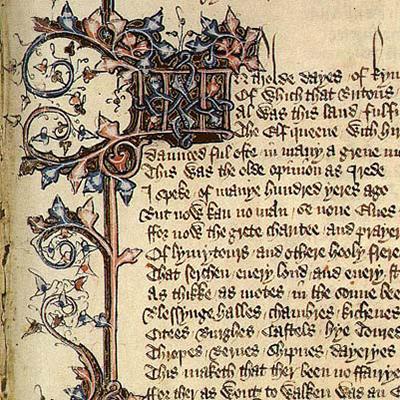 In tholde dayes of kyn
Of which that Britons
Al was this land fulfi
The Elf queene with hir
Daunced ful ofte in many a grene m
This was the olde opinion as I rede
I speke of manye hundred yeres ago
But now kan no man se none Elues
ffor now the grete charitee and prayer
Of lymytours and othere hooly frere
That serchen euery lond and euery st
As thikke as motes in the sonne bee
Blessynge halles chambres kichenes
Citees Burghes Castels hye Toures
Thropes Bernes Shipnes dayeryes
This maketh that ther been no ffairye
ffor ther as wont to walken was an E